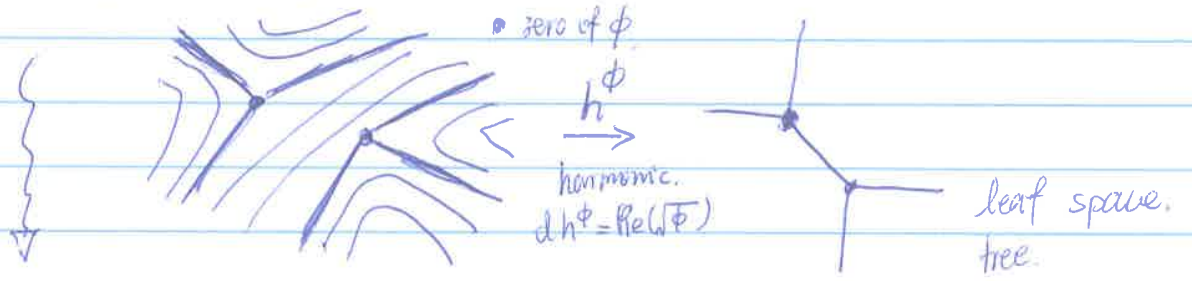 zero of φ.
h^φ
harmonic.
dh^φ = Re(√φ)
leaf space.
tree.